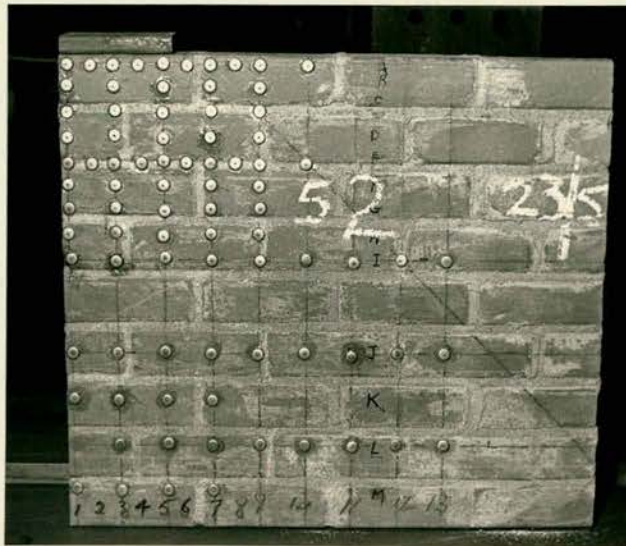 C
D
E
52
23/5
G
H
I
J
K
L
M
1 2 3 4 5 6 7 8 9 10 11 12 13